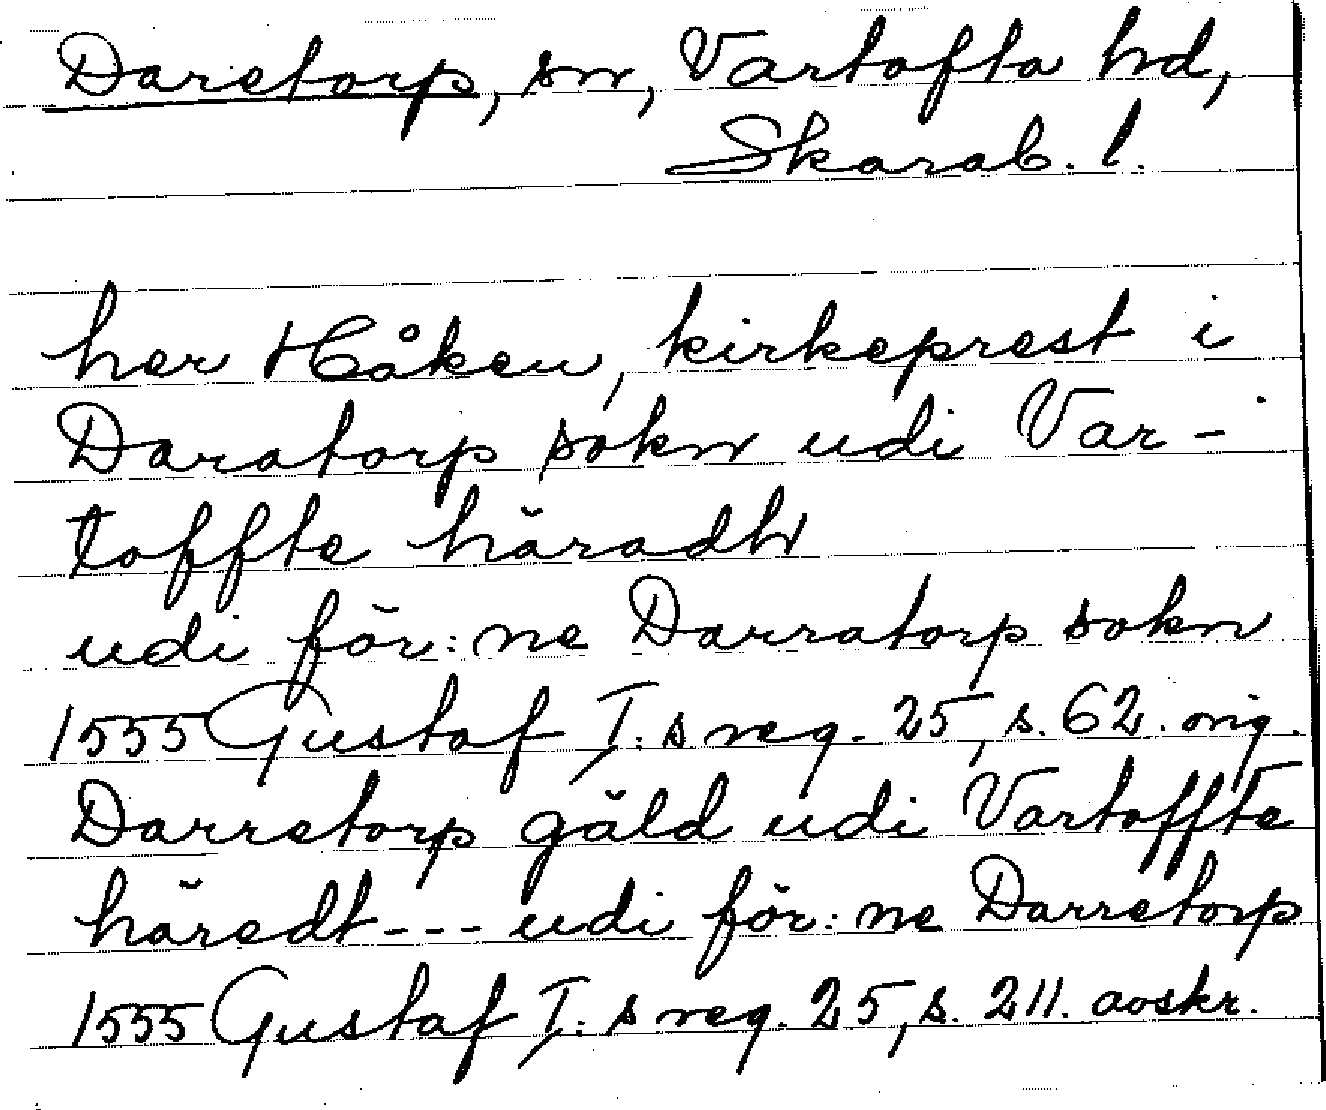 Daretorp, sn, Vartofta hd,
Skarab. l.
her Håken, kirkeprest i
Daratorp sokn udi Var-
toffte häradh
udi för:ne Darratorp sokn
1555 Gustaf I:s reg. 25, s. 62. orig.
Darretorp gäld udi Vartoffte
häredt--- udi för:ne Darretorp
1555 Gustaf I:s reg. 25, s. 211. avskr.